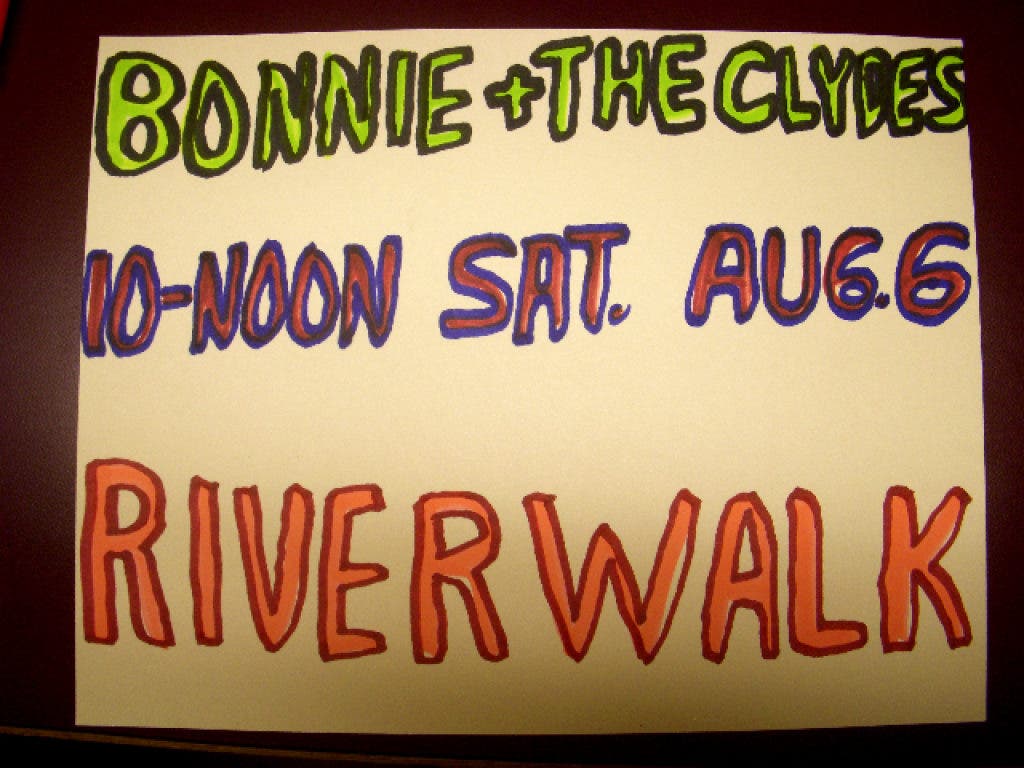 BONNIE + THE CLYDES
10-NOON SAT. AUG.6
RIVERWALK